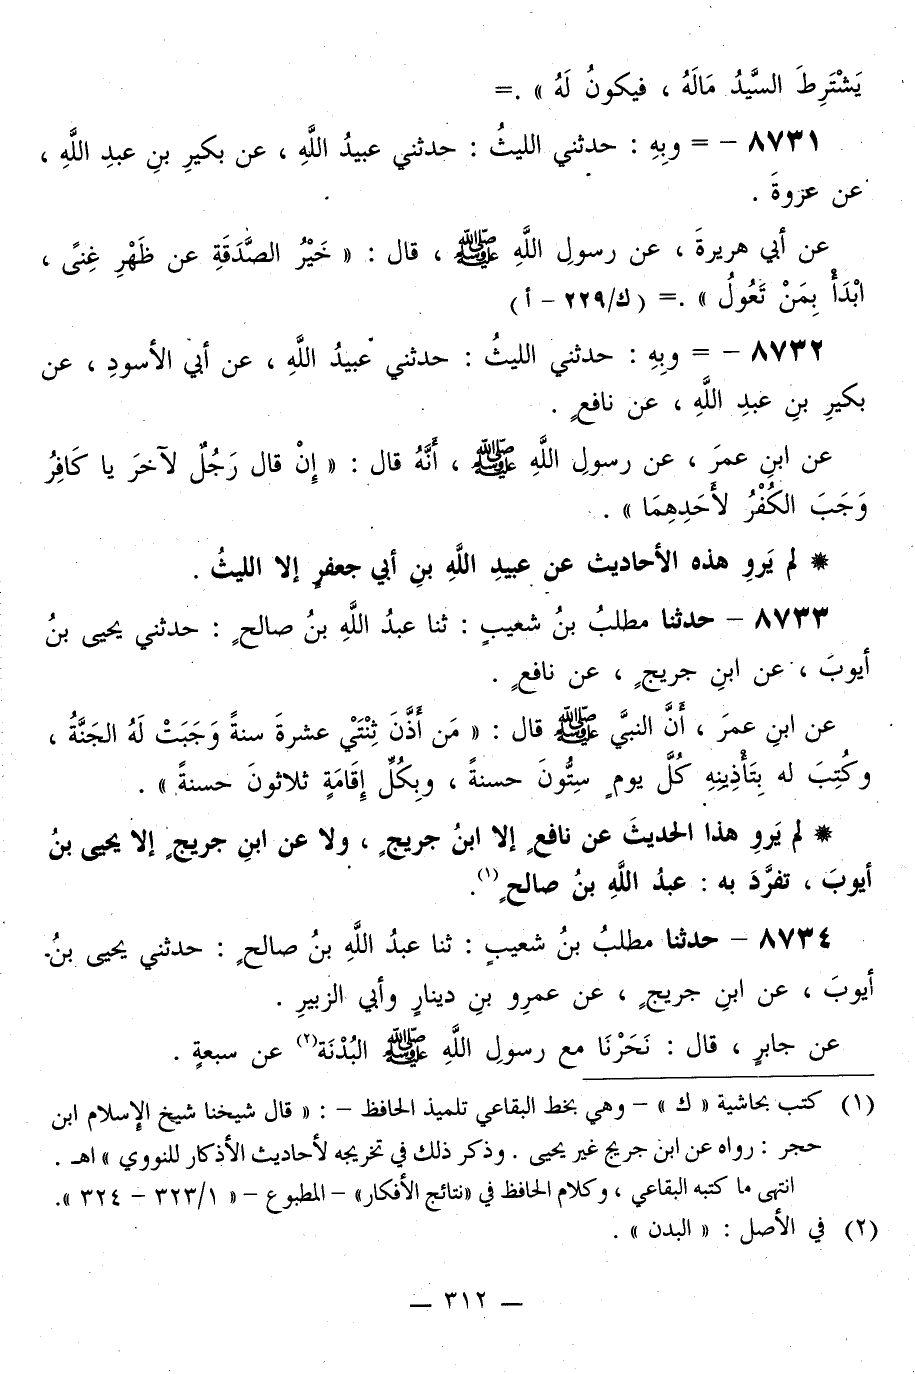 يَشْتَرِطَ السَّيِّدُ مَالَهُ ، فيكونُ لَهُ » .=
٨٧٣١ – = وبِهِ : حدثني الليثُ : حدثني عبيدُ اللَّهِ ، عن بكيرِ بنِ عبدِ اللَّهِ ،
عن عروةَ .
عن أبي هريرةَ ، عن رسولِ اللَّهِ ﷺ ، قال : « خَيْرُ الصَّدَقَةِ عن ظَهْرِ غِنًى ،
ابْدَأْ بِمَنْ تَعُولُ » .= (ك/٢٢٩ – أ)
٨٧٣٢ – = وبِهِ : حدثني الليثُ : حدثني عبيدُ اللَّهِ ، عن أبي الأسودِ ، عن
بكيرِ بنِ عبدِ اللَّهِ ، عن نافعٍ .
عن ابنِ عمرَ ، عن رسولِ اللَّهِ ﷺ ، أَنَّهُ قال : « إِنْ قال رَجُلٌ لآخرَ يا كَافِرُ
وَجَبَ الكُفْرُ لأَحَدِهِمَا » .
* لم يَروِ هذه الأحاديث عن عبيدِ اللَّهِ بنِ أبي جعفرٍ إلا الليثُ .
٨٧٣٣ – حدثنا مطلبُ بنُ شعيبٍ : ثنا عبدُ اللَّهِ بنُ صالحٍ : حدثني يحيى بنُ
أيوبَ ، عن ابنِ جريجٍ ، عن نافعٍ .
عن ابنِ عمرَ ، أَنَّ النبيَّ ﷺ قال : « مَن أَذَّنَ ثِنْتَيْ عشرةَ سنةً وَجَبَتْ لَهُ الجَنَّةُ ،
وكُتِبَ له بِتَأْذِينِهِ كُلَّ يومٍ سِتُّونَ حسنةً ، وبِكُلِّ إِقَامَةٍ ثلاثونَ حسنةً » .
* لم يَروِ هذا الحديثَ عن نافعٍ إلا ابنُ جريجٍ ، ولا عن ابنِ جريجٍ إلا يحيى بنُ
أيوبَ ، تفرَّدَ به : عبدُ اللَّهِ بنُ صالحٍ(١).
٨٧٣٤ – حدثنا مطلبُ بنُ شعيبٍ : ثنا عبدُ اللَّهِ بنُ صالحٍ : حدثني يحيى بنُ
أيوبَ ، عن ابنِ جريجٍ ، عن عمرِو بنِ دينارٍ وأبي الزبيرِ .
عن جابرٍ ، قال : نَحَرْنَا مع رسولِ اللَّهِ ﷺ البُدْنَة(٢) عن سبعةٍ .
(١) كتب بحاشية « ك » – وهي بخط البقاعي تلميذ الحافظ – : « قال شيخنا شيخ الإسلام ابن
حجر : رواه عن ابن جريج غير يحيى . وذكر ذلك في تخريجه لأحاديث الأذكار للنووي » اهـ .
انتهى ما كتبه البقاعي ، وكلام الحافظ في «نتائج الأفكار» – المطبوع – « ٣٢٣/١ – ٣٢٤ ».
(٢) في الأصل : « البدن » .
— ٣١٢ —